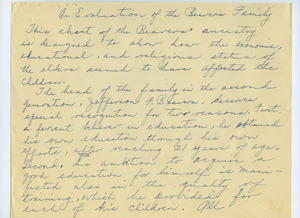 An Evaluation of the Beavers Family
This chart of the Beavers' ancestry
is designed to show how the economic,
educational, and religious status of
the elders seemed to have affected the
children.
The head of the family in the second
generation, Jefferson F. Beavers, deserves
special recognition for two reasons. First,
a firm believer in education, he obtained
his own education through his own
efforts, after reaching 21 years of age.
Second, his ambition to acquire a
good education for himself is mani-
fested also in the quality of
training, which he provided for
each of his children. All